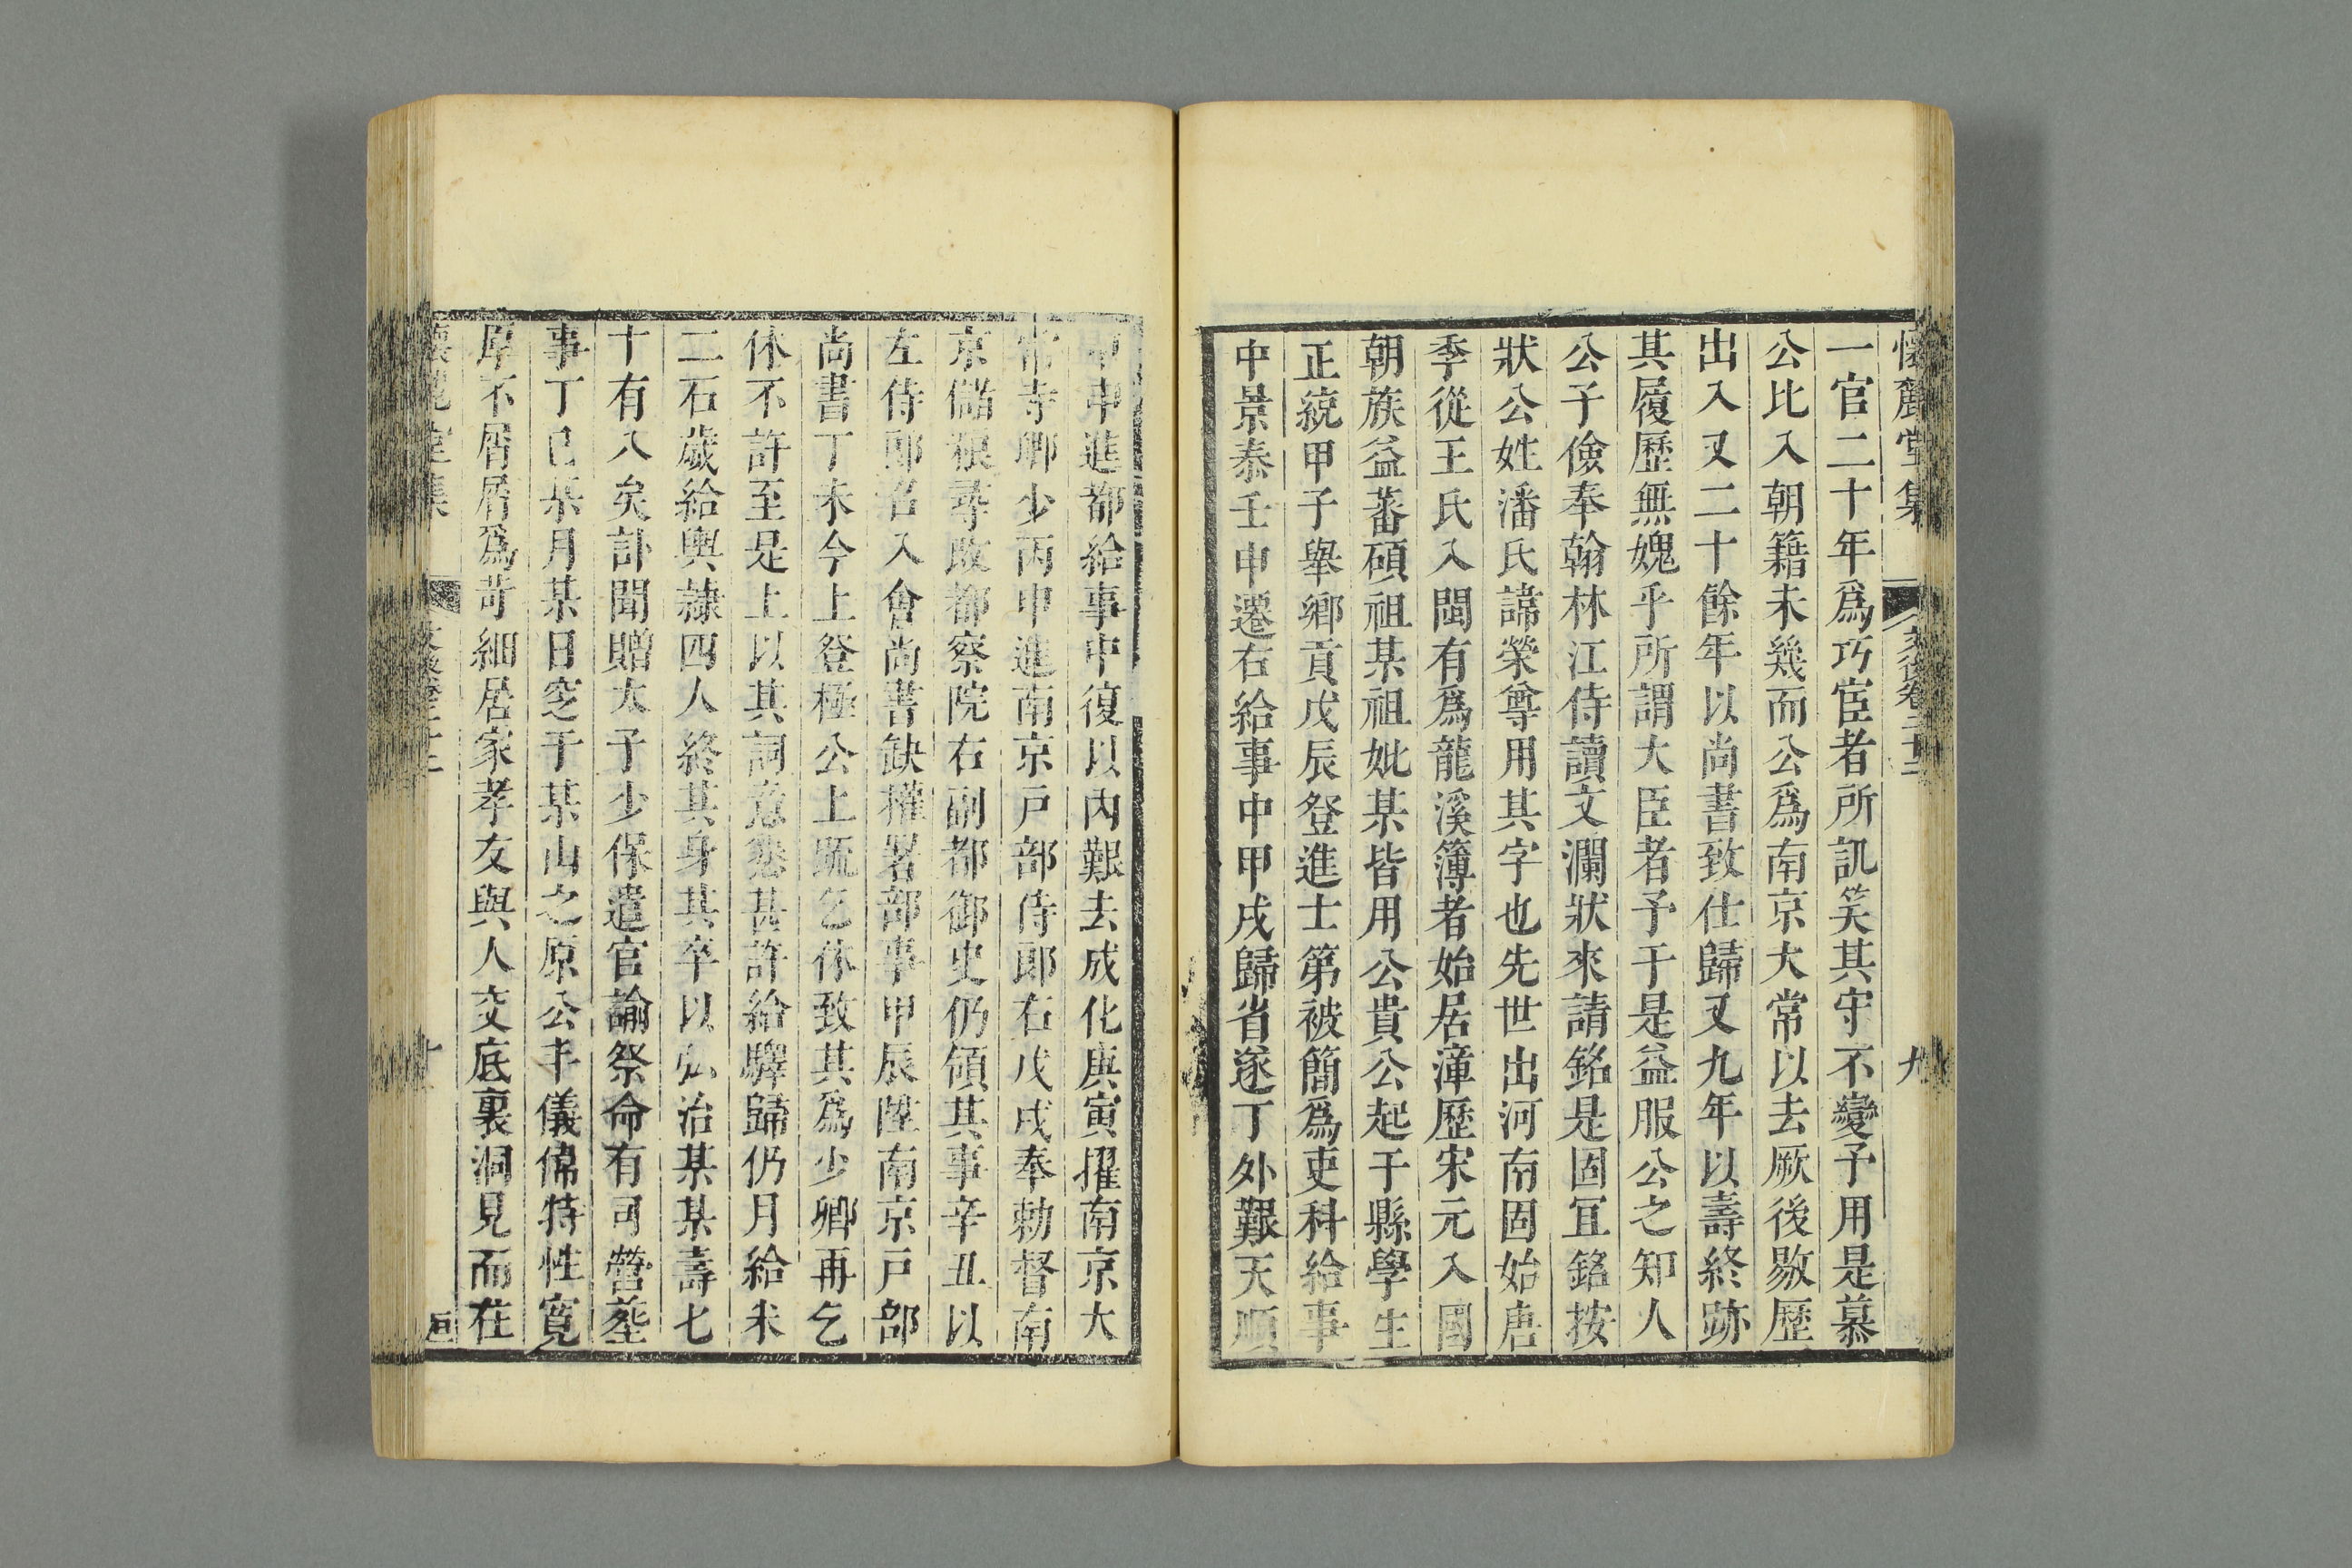 懷麓堂集 文後卷二十三 九
一官二十年爲巧宦者所訕笑其守不變予用是慕
公比入朝籍未幾而公爲南京大常以去厥後敭歷
出入又二十餘年以尚書致仕歸又九年以壽終跡
其履歷無媿乎所謂大臣者予于是益服公之知人
公子儉奉翰林江侍讀文瀾狀來請銘是固宜銘按
狀公姓潘氏諱榮尊用其字也先世出河南固始唐
季從王氏入閩有爲龍溪簿者始居漳歷宋元入國
朝族益蕃碩祖某祖妣某皆用公貴公起于縣學生
正統甲子舉鄉貢戊辰登進士第被簡爲吏科給事
中景泰壬申遷右給事中甲戌歸省遂丁外艱天順
甲申進都給事中復以內艱去成化庚寅擢南京大
常寺卿少丙申進南京戶部侍郎右戊戌奉勅督南
京儲粮尋改都察院右副都御史仍領其事辛丑以
左侍郎召入會尚書缺權署部事甲辰陞南京戶部
尚書丁未今上登極公上疏乞休致其爲少卿再乞
休不許至是上以其詞意懇甚許給驛歸仍月給米
二石歲給輿隷四人終其身其卒以弘治某某壽七
十有八矣訃聞贈太子少保遣官諭祭命有司營塟
事丁巳某月某日窆于某山之原公丰儀偉特性寬
厚不屑屑爲苛細居家孝友與人交底裏洞見而在
十